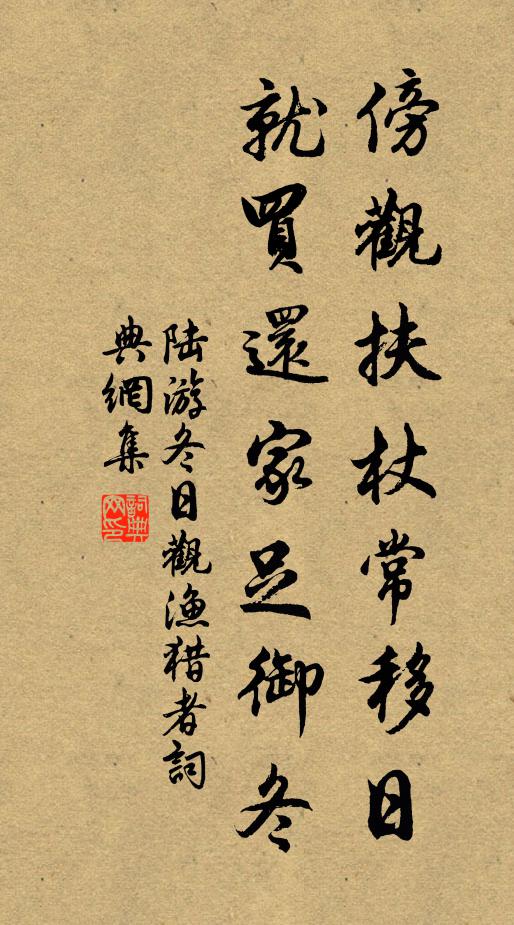 傍觀扶杖常移日
就買還家足御冬
陸游冬日觀漁猎者詞
典網集
詞典网印